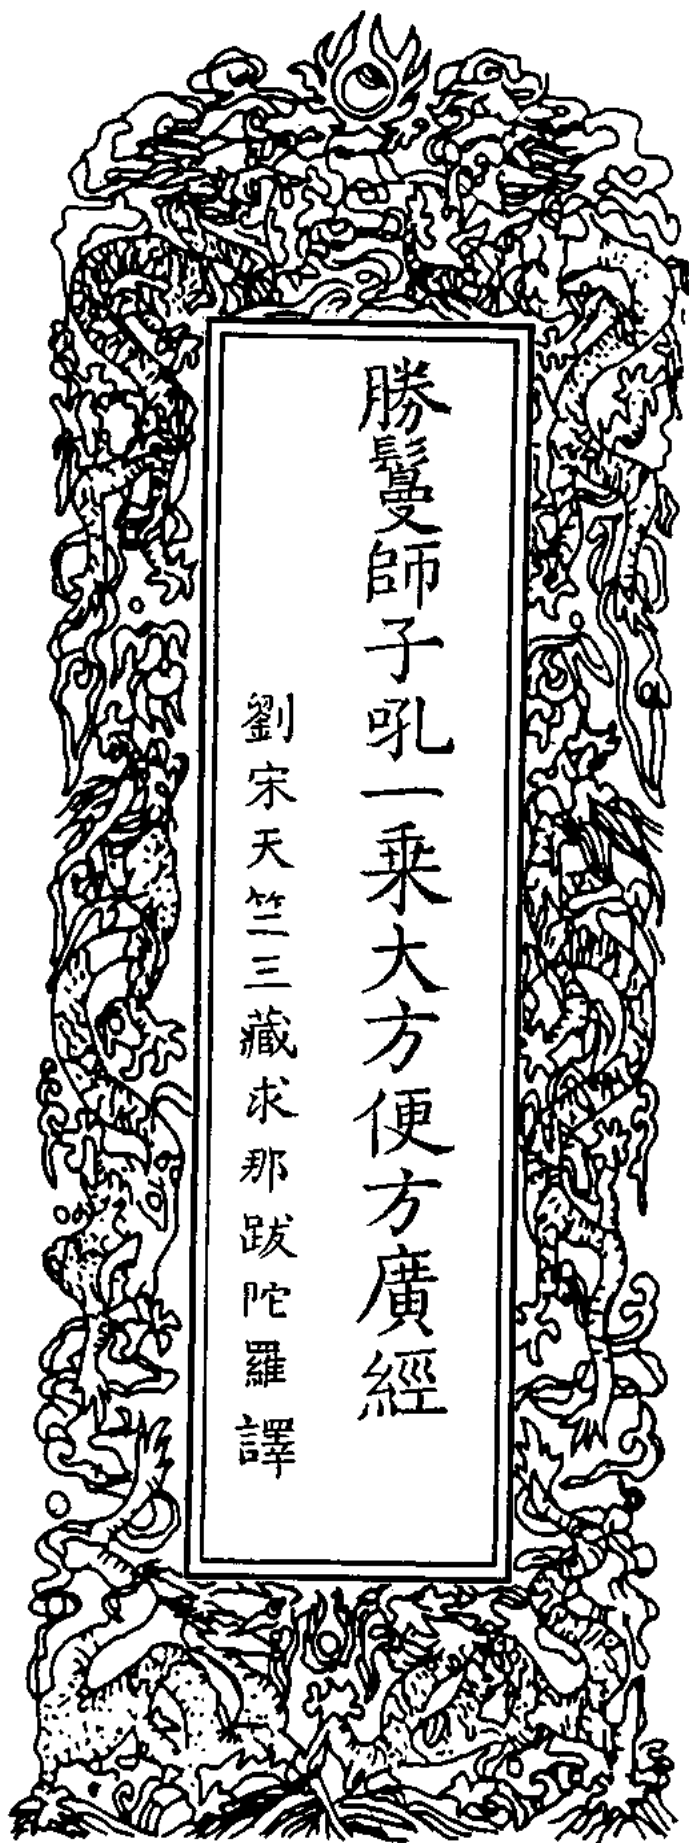 勝鬘師子吼一乘大方便方廣經
劉宋天竺三藏求那跋陀羅譯